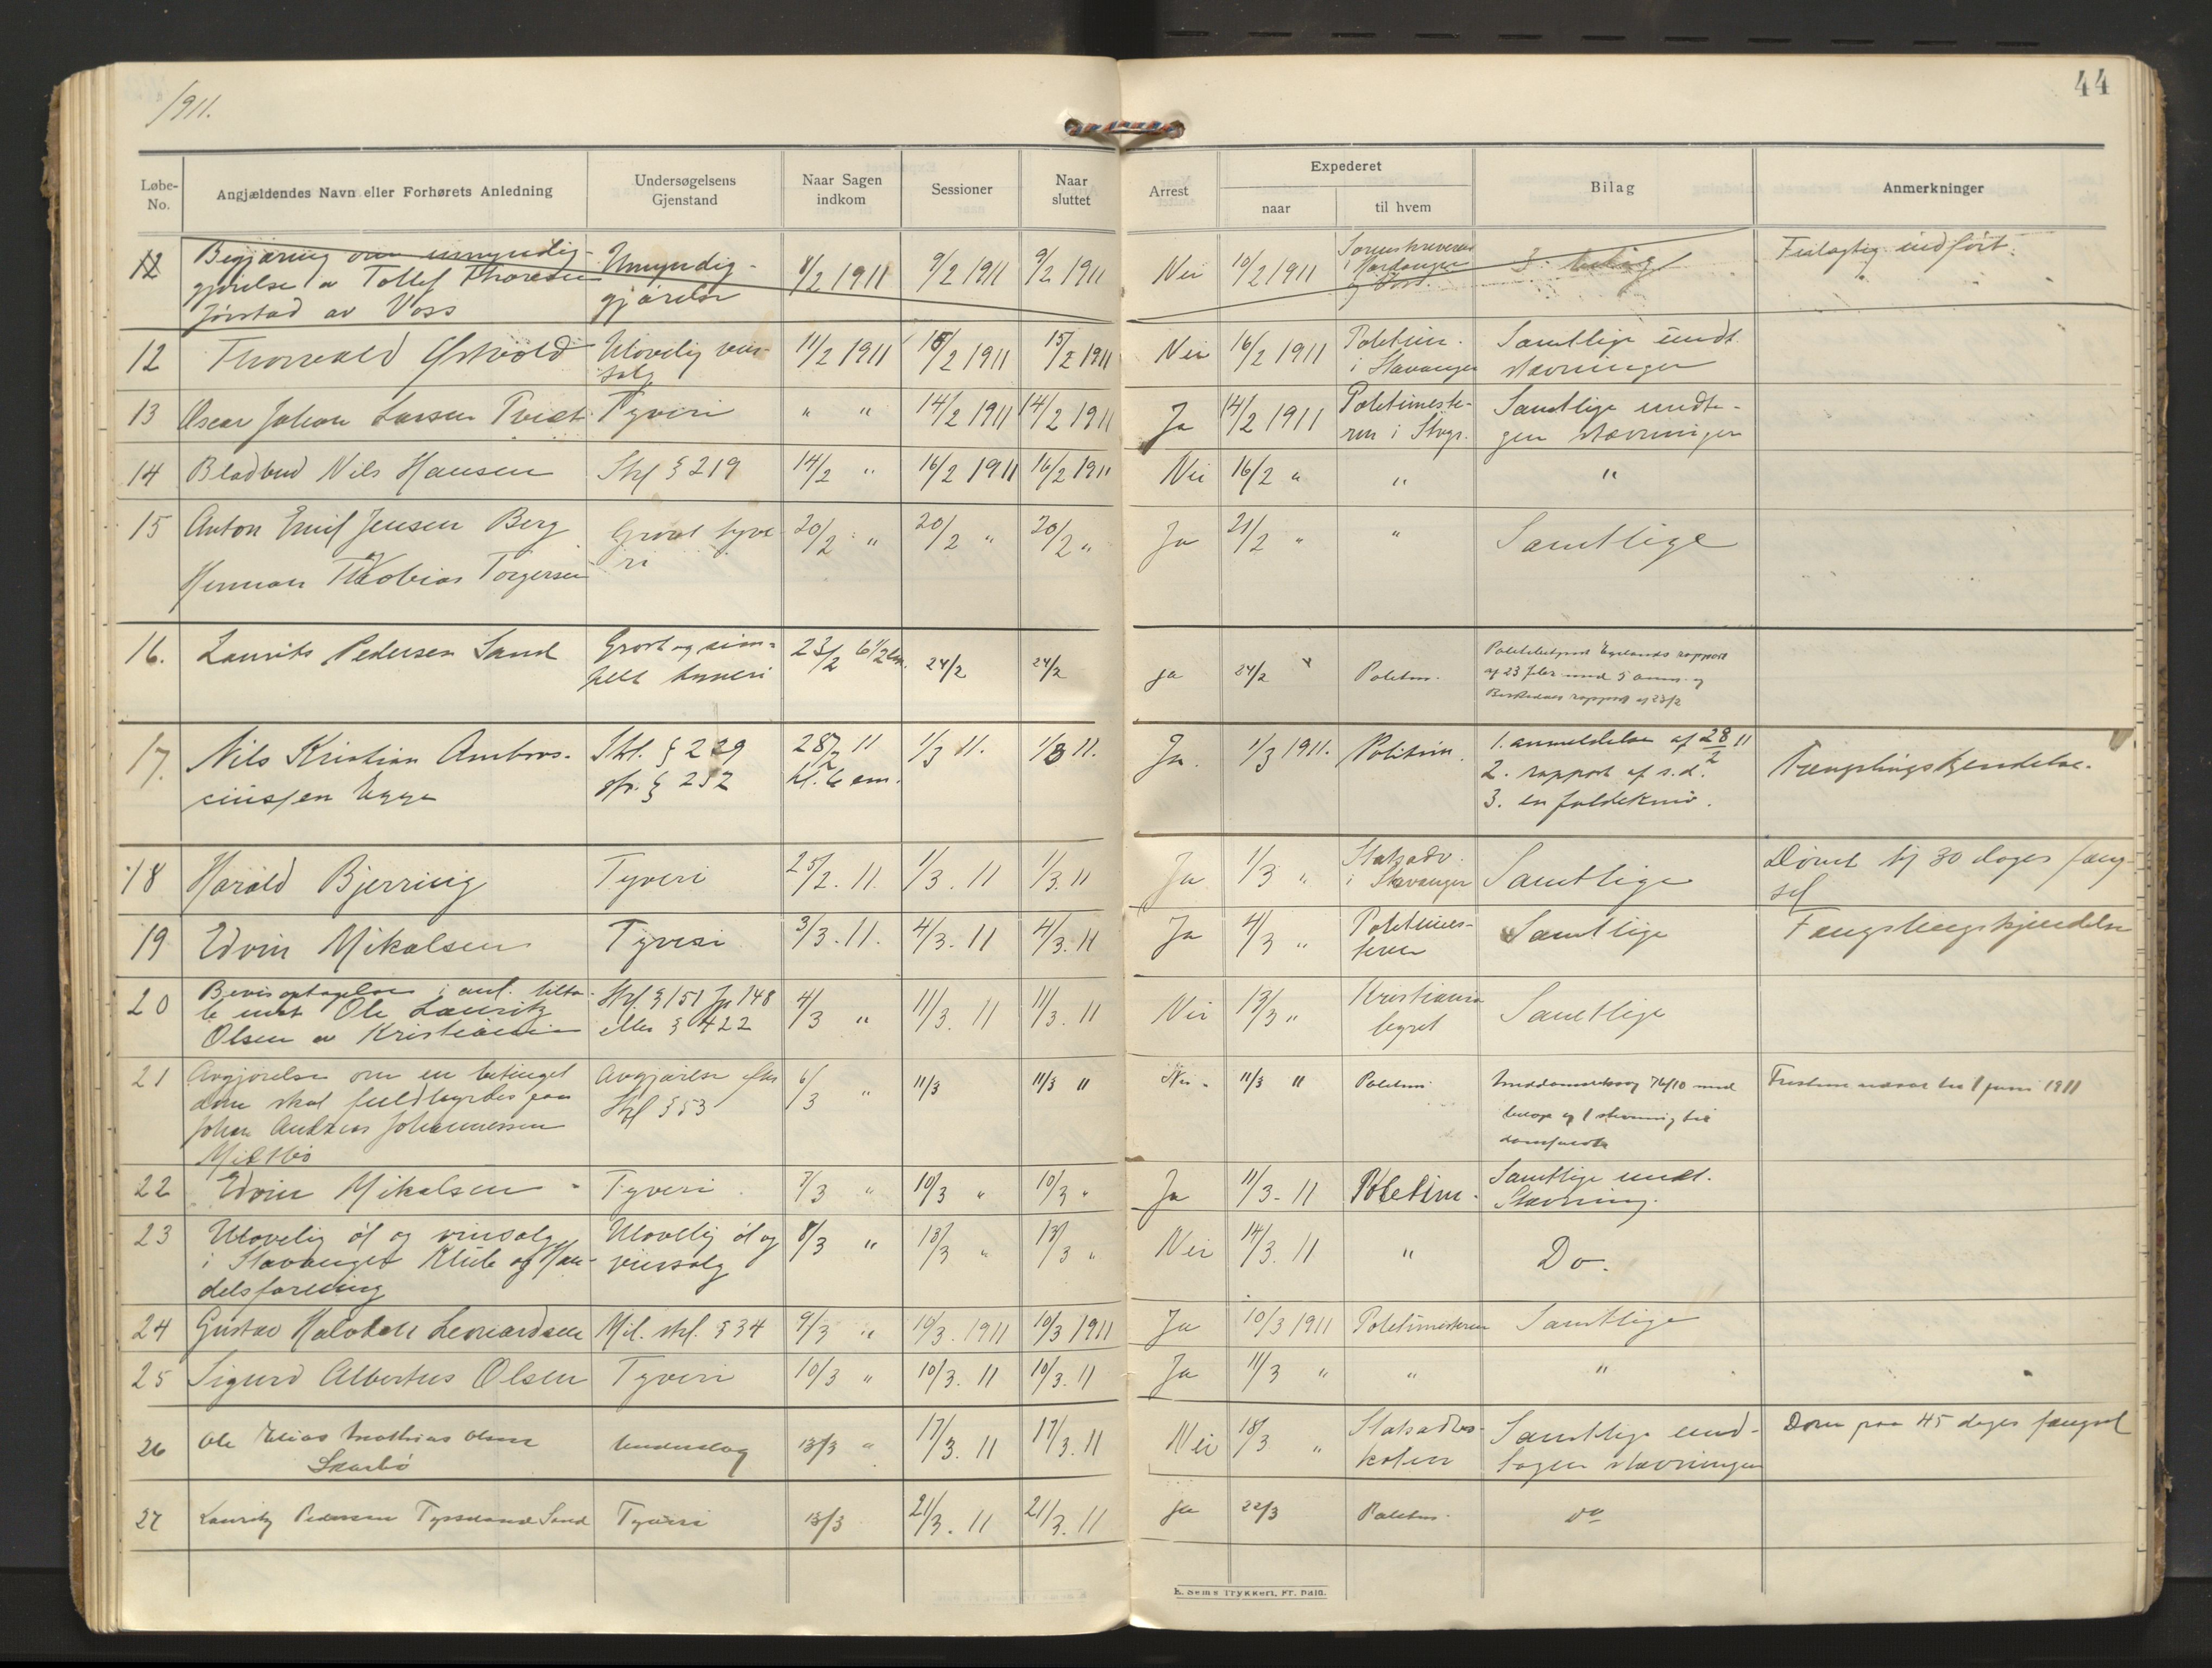 1911.
44
Løbe-No. Angjældendes Navn eller Forhørets Anledning Undersøgelsens Gjenstand Naar Sagen indkom Sessioner Naar sluttet Arrest Expederet naar til hvem Bilag Anmerkninger
12 Begjæring om umyndig- Umyndig- 8/2 1911 9/2 1911 9/2 1911 Nei 10/2 1911 Sorenskriveren 3 bilag Feilagtig indført.
gjørelse av Tollef gjørelse i Hardanger
Jørstad av Voss og Voss.
12 Thorvald Ulovelig vin- 11/2 1911 15/2 1911 15/2 1911 Nei 16/2 1911 Politim. Samtlige undt.
salg i Stavanger stævninger
13 Oscar Johan Larsen Tveit Tyveri " " 14/2 1911 14/2 1911 Ja 14/2 1911 Politimeste- Samtlige undta-
ren i Stvgr. gen stævningen
14 Bladbud Nils Hansen Strl § 219 14/2 " 16/2 1911 16/2 1911 Nei 16/2 " " "
15 Anton Emil Jensen Berg Grovt tyve- 20/2 " 20/2 " 20/2 " Ja 21/2 " " Samtlige
og ri
Herman Tobias Torgersen
16. Laurits Pedersen Sand Grovt og sim- 23/2 6 1/2 em. 24/2 24/2 ja 24/2 Politm. Politibetjent rapport
pelt tyveri af 23 febr med 5 anm. og
rapport af 23/2
17. Nils Kristian Ambro- Strl. § 229 28/2 11 1/3 11. 1/3 11. Ja. 1/3 1911. Politim. 1. anmeldelse af 28/2 11 Fængslingskjendelse.
siussen jfr. § 232 kl. 6 em. 2. rapport af s.d.
3. en foldekniv.
18 Harald Bjerring Tyveri 25/2. 11. 1/3. 11 1/3. 11 Ja 1/3 " Statsadv. Samtlige Dømt til 30 dages fæng-
i Stavanger sel
19 Edvin Mikalsen Tyveri 3/3. 11. 4/3. 11 4/3. 11 Ja 4/3 " Politimes- Samtlige Fængslingskjendelse
teren
20 Bevisoptagelse i anl. tilta- Strl § 151 jfr 148 4/3 " 11/3. 11 11/3. 11 Nei 13/3 " Kristiania Samtlige
le mot Ole Lauritz eller § 422 byret
Olsen av Kristiania
21 Avgjørelse om en betinget Avgjørelse efter 6/3 " 11/3 11/3 11 Nei. 11/3 11 Politim. Meddomsretssag 76/10 med Fristen 1 juni 1911
dom skal fuldbyrdes paa Strl § 53 bilage og 1 stevning til
Johan Andreas Johannessen domfældte
22 Edvin Mikalsen Tyveri 7/3 " 10/3 " 10/3 " Ja 11/3. 11 Politim. Samtlige undt.
Stævning.
23 Ulovelig øl og vinsalg Ulovelig øl og 8/3 " 13/3 " 13/3 " Nei 14/3. 11 " Do.
i Stavanger Klub og Han- vinsalg
delsforening
24 Gustav Leonardsen Mil. strl. § 34 9/3 " 10/3. 1911 10/3 1911 Ja 10/3 1911 Politimesteren Samtlige
25 Sigurd Albertus Olsen Tyveri 10/3 " 10/3. 11 10/3. 11 Ja 11/3 " " "
26 Ole Elias Mathias Olsen Underslag 13/3 " 17/3. 11 17/3. 11 Nei 18/3 " Statsadvo- Samtlige und- Dom paa 45 dages fængsel
Skarbø katen tagen stævningen
27 Lauritz Pedersen Sand Tyveri 13/3 21/3. 11 21/3. 11 ja 22/3 Politm. do
E. Sems Trykkeri, Fr. hald.